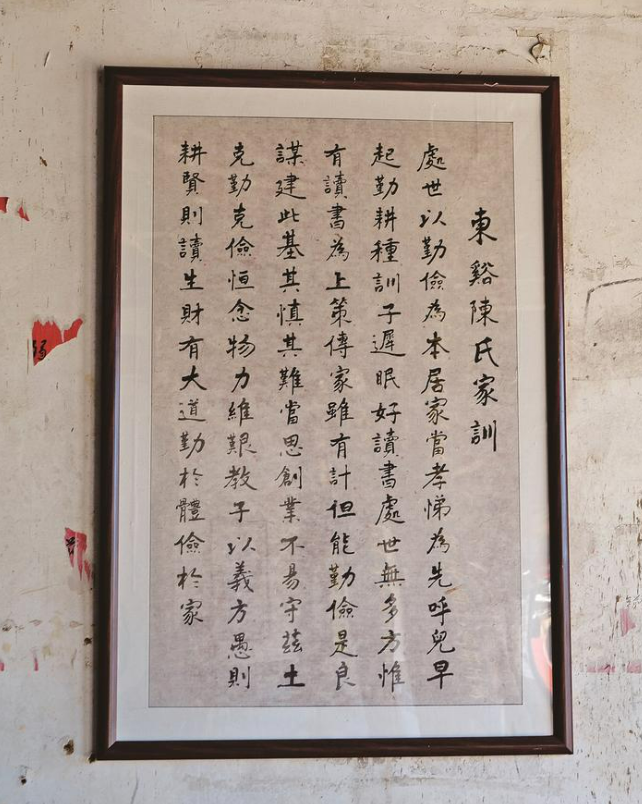 東谿陳氏家訓
處世以勤儉為本居家當孝悌為先呼兒早
起勤耕種訓子遲眠好讀書處世無多方惟
有讀書為上策傳家雖有計但能勤儉是良
謀建此基其慎其難當思創業不易守茲土
克勤克儉恒念物力維艱教子以義方愚則
耕賢則讀生財有大道勤於體儉於家